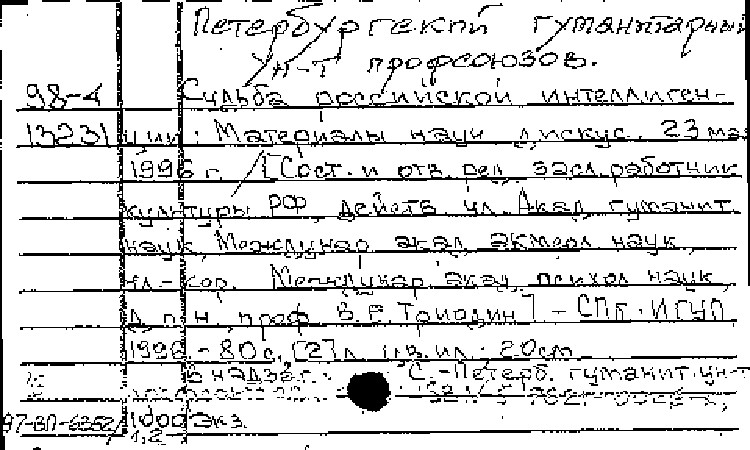 Петербургский гуманитарный
Ун-т профсоюзов.
98-4 Судьба российской интеллиген-
13231 ции: Материалы науч дискус. 23 мая
1996 г. / [Сост. и отв. ред. засл. работник
культуры РФ, действ чл. Акад. гуманит.
наук, Междунар акад. акмеол наук,
чл.-кор. Междунар. акад. психол наук,
д.п.н проф В.Е. Триодин] - СПб: ИГУП
1996 - 80 с., [2] л. ил. 20 см
В надзаг.: С.-Петерб. гуманит. ун-т
97-ВП-6352/ 1000 экз.
1,2